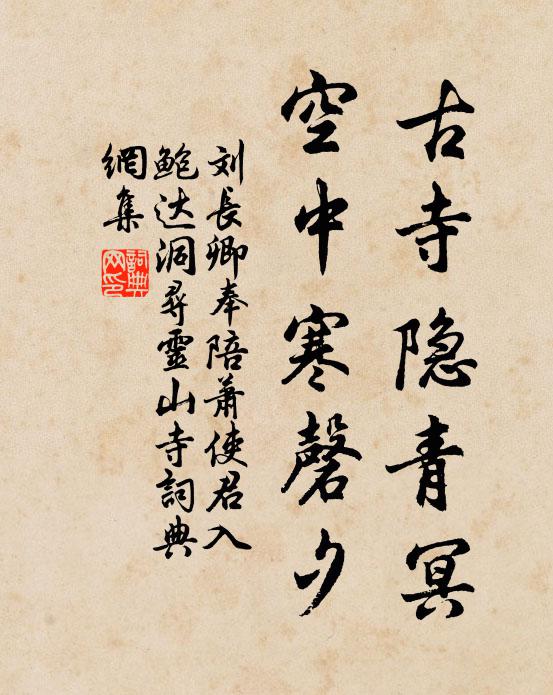 古寺隐青冥
空中寒磬夕
刘長卿奉陪蕭使君入
鲍达洞尋靈山寺詞典
網集
詞典
网印